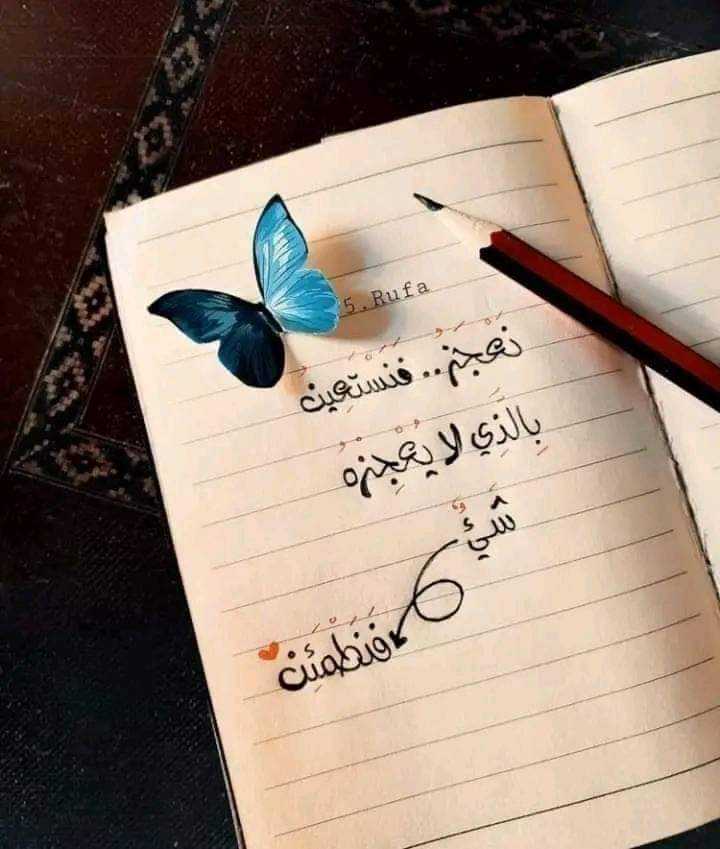 5.Rufa
نَعْجَزُ.. فَنَسْتَعِينُ
بِالَّذِي لَا يُعْجِزُهُ
شَيْءٌ
فَنَطْمَئِنُ